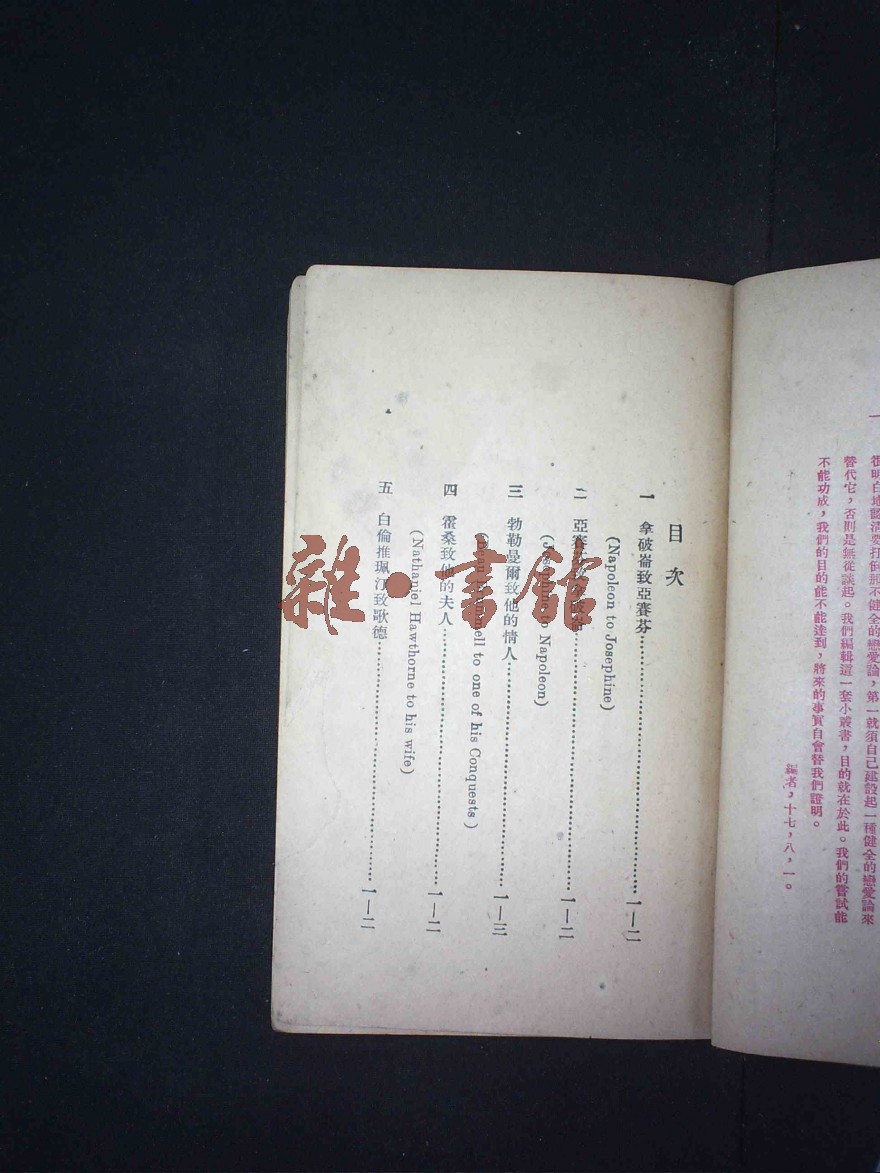 很明白地認清要打倒那不健全的戀愛論，第一就須自己建設起一種健全的戀愛論來
替代它，否則是無從談起。我們編輯這一套小叢書，目的就在於此。我們的嘗試能
不能功成，我們的目的能不能達到，將來的事實自會替我們證明。
編者，十七，八，一。
目次
一 拿破崙致亞賽芬…………一—二
(Napoleon to Josephine)
二 亞賽芬致拿破崙…………一—二
(Josephine to Napoleon)
三 勃勒曼爾致他的情人…………一—三
to one of his Conquests)
四 霍桑致他的夫人…………一—二
(Nathaniel Hawthorne to his wife)
五 白倫推珮汀致歌德…………一—二
雜·書館